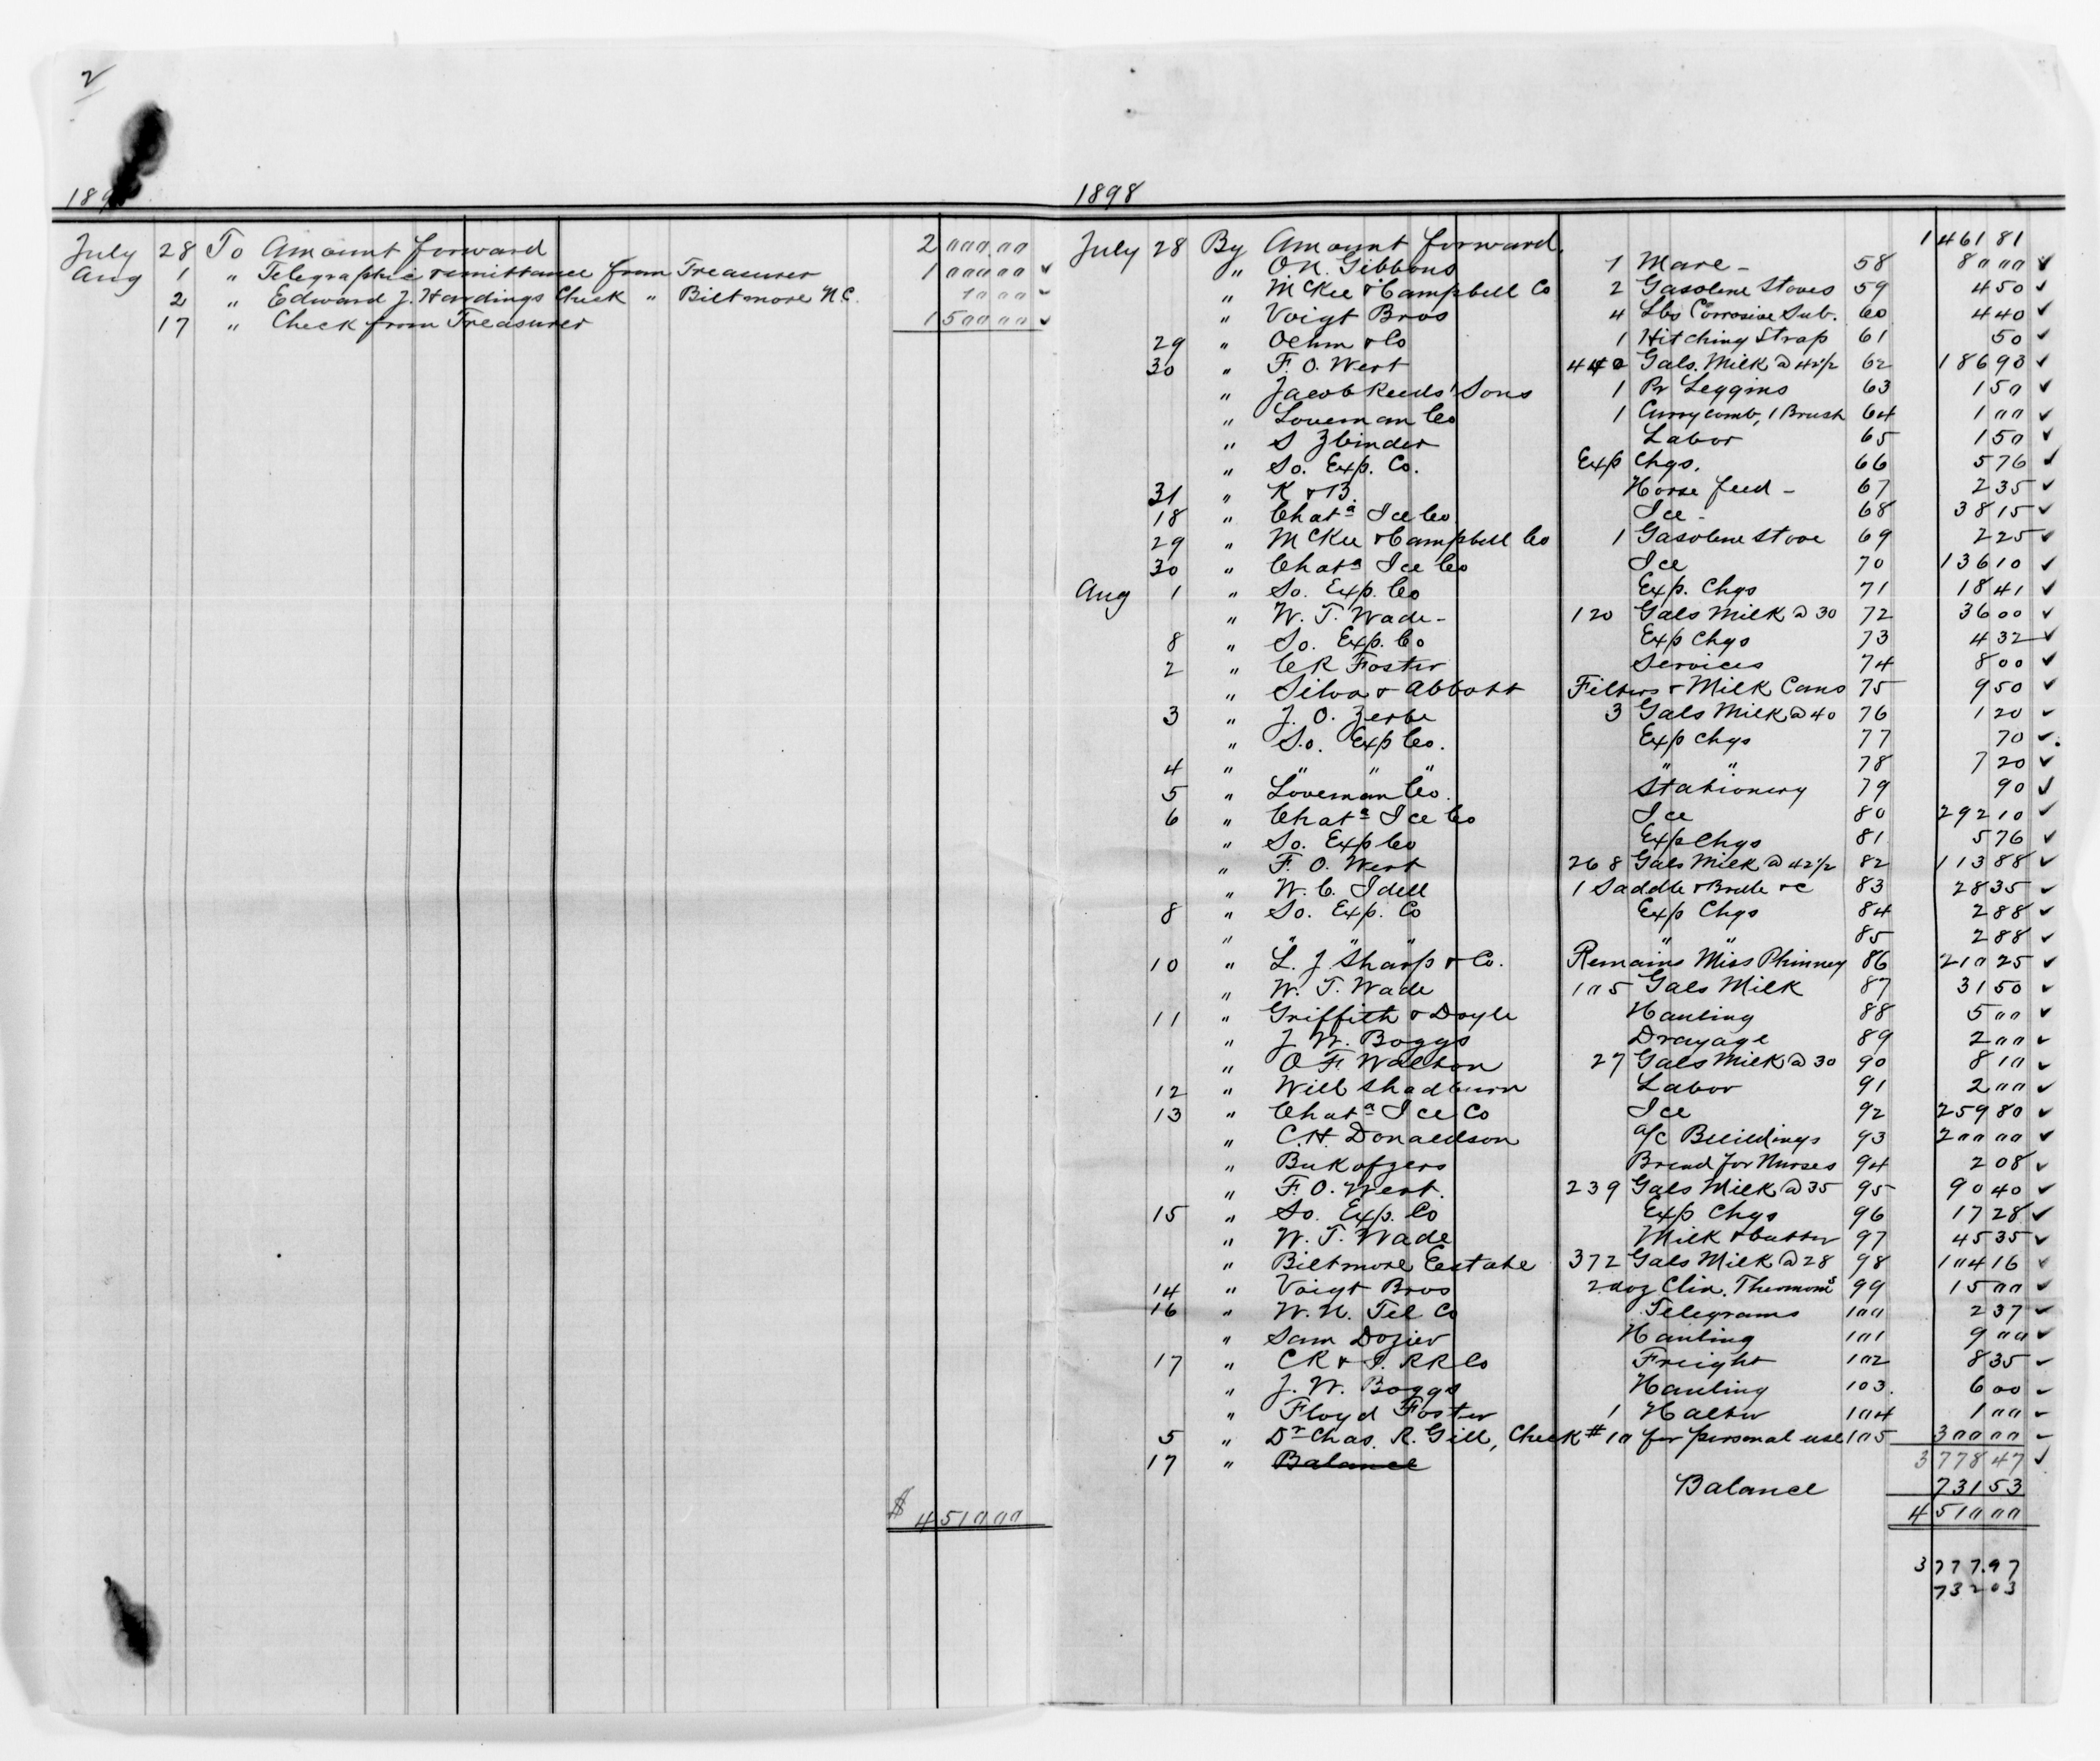 2
189
July 28 To Amount forward 2 000.00
Aug 1 " Telegraphic remittance from Treasurer 1 000 00 ✓
2 " Edward J. Hardings Check " Biltmore N.C. 10 00 ✓
17 " Check from Treasurer 1 500 00 ✓
$ 4 510 00
1898
July 28 By Amount forward. 1 461 81
" O.N. Gibbons 1 Mare - 58 80 00 ✓
" McKee & Campbell Co 2 Gasoline Stoves 59 4 50 ✓
" Voigt Bros 4 Lbs Corrosive Sub. 60 4 40 ✓
29 " Oehm & Co 1 Hitching Strap 61 50 ✓
30 " F. O. Wert 440 Gals. Milk @ 42½ 62 186 93 ✓
" Jacob Reeds' Sons 1 Pr Leggins 63 1 50 ✓
" Loveman Co 1 Curry comb, 1 Brush 64 1 00 ✓
" S Zbinder Labor 65 1 50 ✓
" So. Exp. Co. Exp Chgs. 66 5 76 ✓
31 " K & B. Horse feed - 67 2 35 ✓
18 " Chata Ice Co Ice - 68 38 15 ✓
29 " McKee & Campbell Co 1 Gasoline stove 69 2 25 ✓
30 " Chata Ice Co Ice 70 136 10 ✓
Aug 1 " So. Exp. Co Exp. Chgs 71 18 41 ✓
" W. T. Wade - 120 Gals Milk @ 30 72 36 00 ✓
8 " So. Exp. Co Exp Chgs 73 4 32 ✓
2 " C R Foster Services 74 8 00 ✓
" Silva & Abbott Filters & Milk Cans 75 9 50 ✓
3 " J. O. Zerbe 3 Gals Milk @ 40 76 1 20 ✓
" So. Exp Co. Exp Chgs 77 70 ✓
4 " " " " " " 78 7 20 ✓
5 " Loveman Co. Stationery 79 90 ✓
6 " Chata Ice Co Ice 80 292 10 ✓
" So. Exp Co Exp Chgs 81 5 76 ✓
" F. O. Wert 268 Gals Milk @ 42½ 82 113 88 ✓
" W. C. Idell 1 Saddle & Bridle &c 83 28 35 ✓
8 " So. Exp. Co Exp Chgs 84 2 88 ✓
" " " " " " 85 2 88 ✓
10 " L. J. Sharp & Co. Remains Miss Phinney 86 210 25 ✓
" W. T. Wade 105 Gals Milk 87 31 50 ✓
11 " Griffith & Doyle Hauling 88 5 00 ✓
" J. W. Boggs Drayage 89 2 00 ✓
" O F. Walton 27 Gals Milk @ 30 90 8 10 ✓
12 " Will Shadburn Labor 91 2 00 ✓
13 " Chata Ice Co Ice 92 259 80 ✓
" C.H. Donaldson a/c Buildings 93 200 00 ✓
" Bukofzers Bread for Nurses 94 2 08 ✓
" F. O. Wert. 239 Gals Milk @ 35 95 90 40 ✓
15 " So. Exp. Co Exp Chgs 96 17 28 ✓
" W. T. Wade Milk & butter 97 45 35 ✓
" Biltmore Eastate 372 Gals Milk @ 28 98 104 16 ✓
14 " Voigt Bros 2 doz Clin. Thermoms 99 15 00 ✓
16 " W. U. Tel Co Telegrams 100 2 37 ✓
" Sam Dozier Hauling 101 9 00 ✓
17 " C R & I. RR Co Freight 102 8 35 ✓
" J. W. Boggs Hauling 103. 6 00 ✓
" Floyd Foster 1 Halter 104 1 00 ✓
5 " Dr Chas. R. Gill, Check #10 for personal use 105 300 00 ✓
17 " Balance 3 778 47 ✓
Balance 731 53
4 510 00
3 777.97
732 03